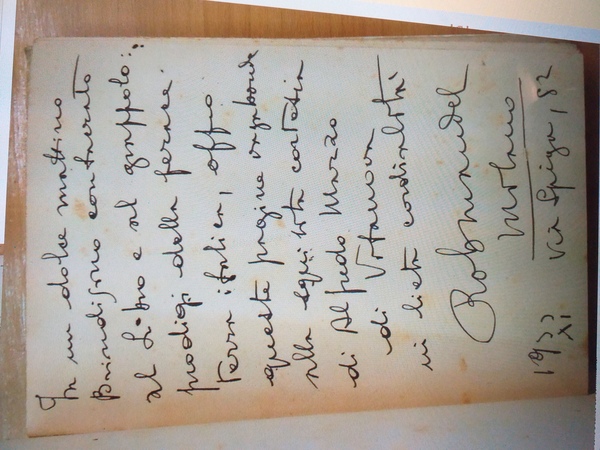 In un dolce mattino
Brindisino consacrato
al Libro e al grappolo:
prodigi della ferace
terra italica, offro
queste pagine vagabonde
alla squisita cortesia
di Alfredo
di
in lieta cordialità
Milano
Via Spiga, 52
1933
XI